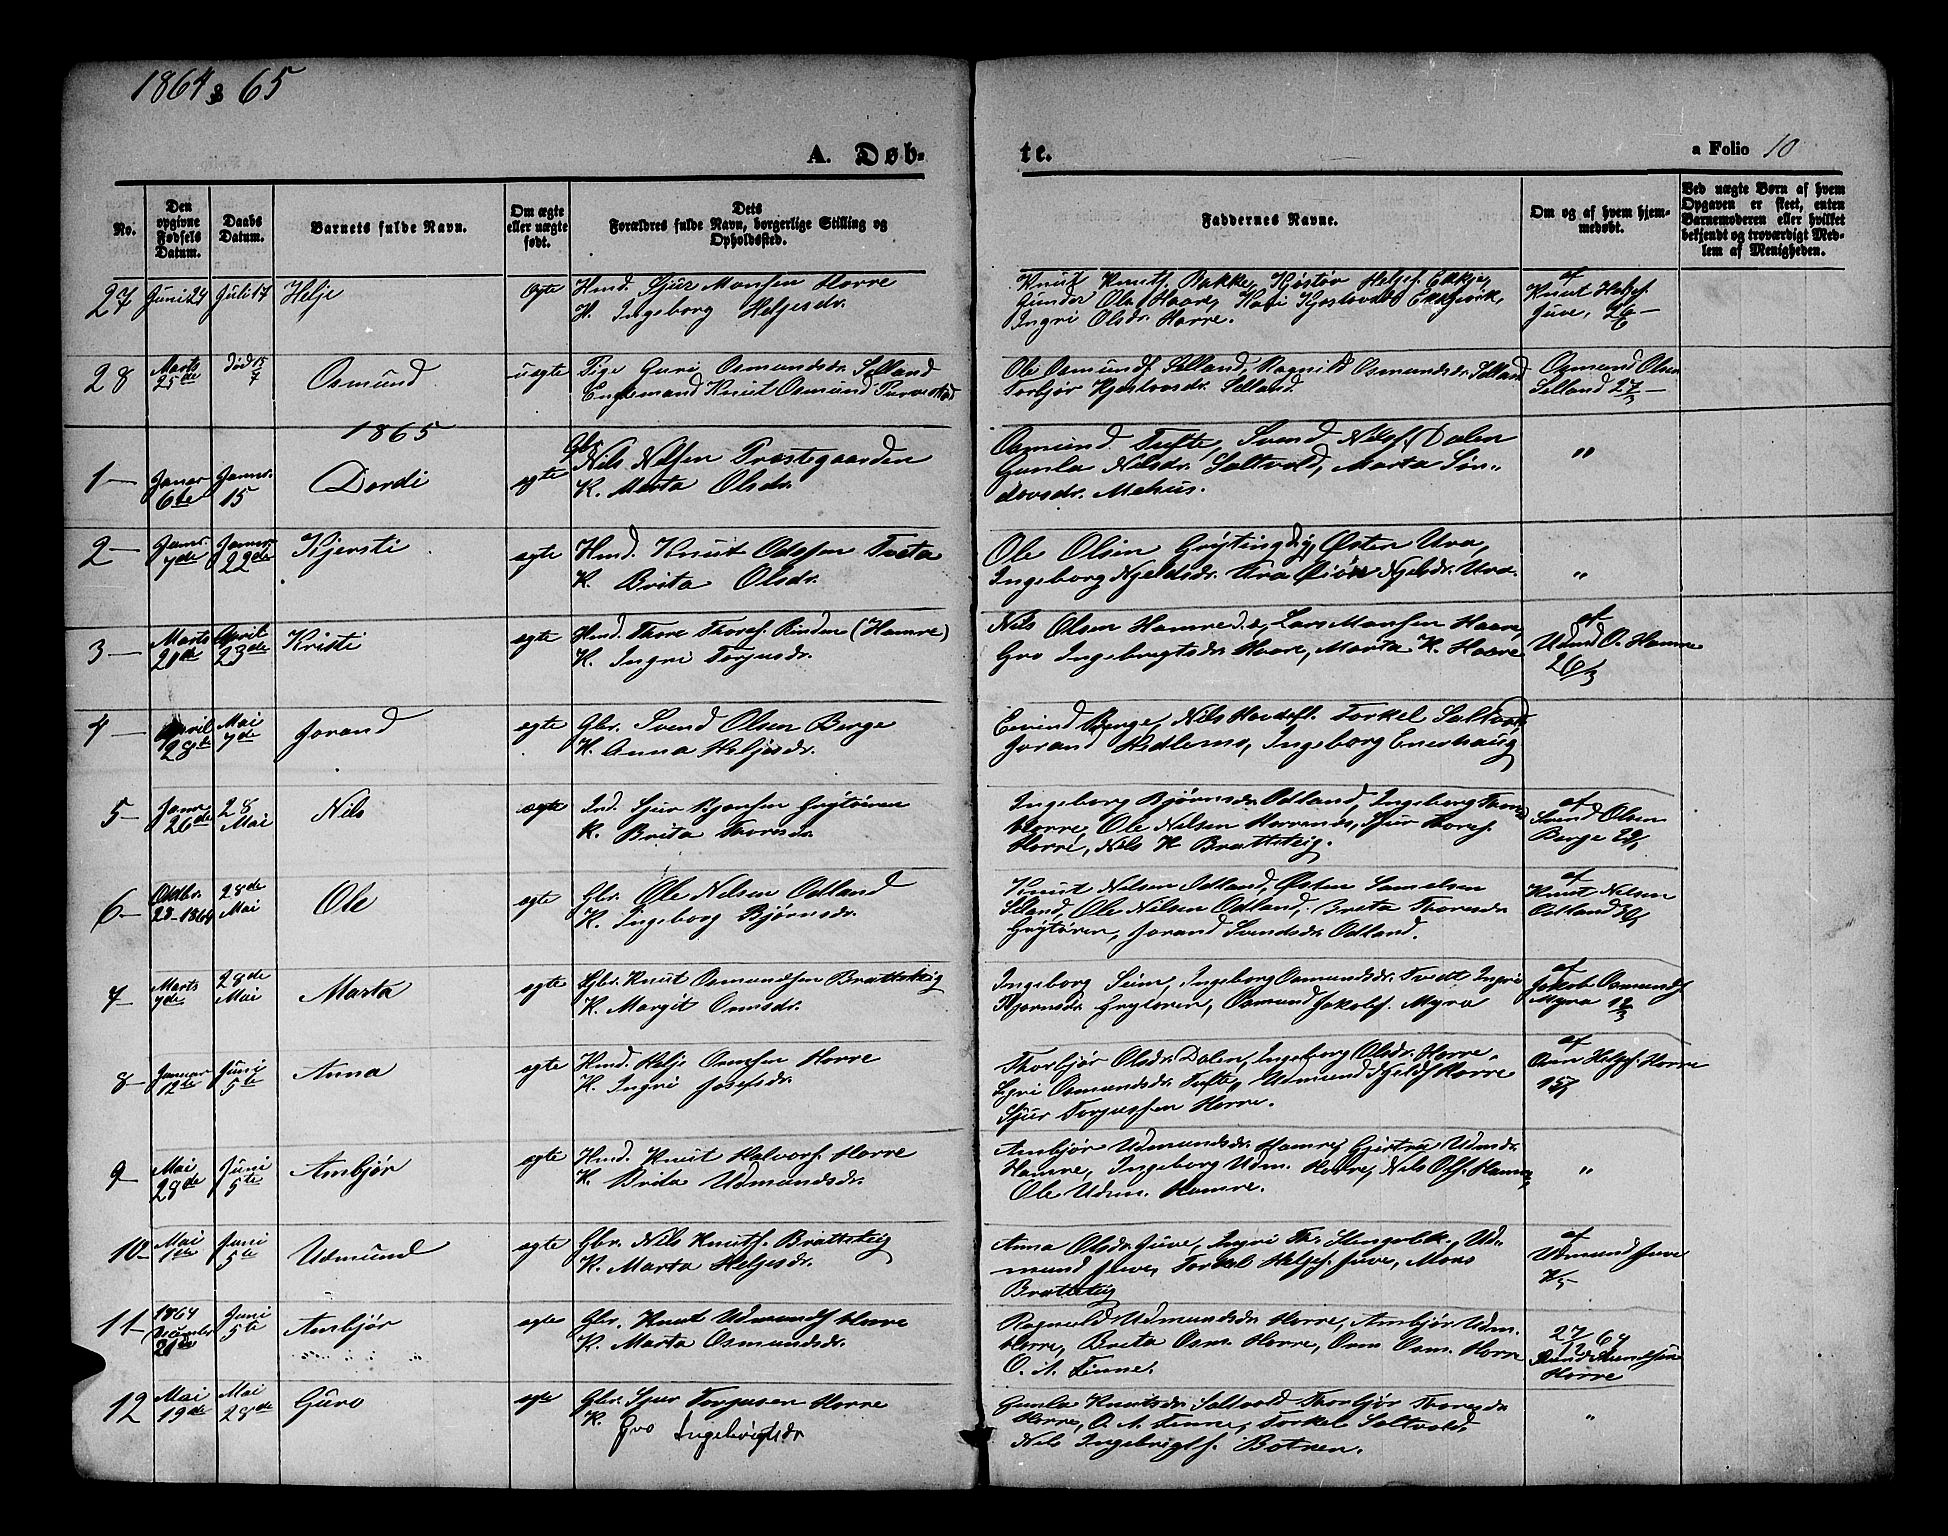 1864 & 65
A. Døb-
te.
a Folio 10
No.
Den opgivne Fødsels Datum.
Daabs Datum.
Barnets fulde Navn.
Om ægte eller uægte født.
Dets Forældres fulde Navn, borgerlige Stilling og Opholdssted.
Faddernes Navne.
Om og af hvem hjemmedøbt.
Ved uægte Børn af hvem Opgaven er skeet, enten Barnemoderen eller hvilket bekjendt og troværdigt Medlem af Menigheden.
27 Juni 24 Juli 17 Helje ægte Hmd. Sjur Monsen Horre
H. Ingeborg Heljesdr.
Knut Knuts. Bakke, Heljes.
Gunder Ols. Haare, Kari
Ingri Olsdr. Horre.
af
Knut Heljes.
Juve, 26/6
28 Marts 25de død 15/7 Osmund uægte Pige Guri Osmundsdr. Selland
Ungkemand Knut Osmunds.
Ole Osmunds. Selland, Ragnild Osmundsdr. Selland
Torbjør Selland.
Osmund Olsen
Selland 27/3
1865
1 Januar 6te Januar 15 Dordi ægte Gbr. Nils Nilsen Præstegaarden
K. Marta Olsdr.
Osmund Tufte, Svend Nilss. Dalen
Gunla Nilsdr. Saltvold, Marta Søn-
dovsdr. Mehus.
"
2 Januar 7de Januar 22de Kjersti ægte Hmd. Knut Odssen Tveta
K. Brita Olsdr.
Ole Olsen Grytingli, Østen Ura,
Ingeborg Njeldsdr. Njelsdr. Ura.
"
3 Marts 21de April 23de Kristi ægte Hmd. Thore Thores. Rinden (Hamre)
K. Ingri Torjusdr.
Nils Olsen Hamre d.e., Lars Monsen Haare,
Gro Ingebrigtsdr. Haare, Marta K. Haare
af
Udmund O. Hamre
26/3
4 April 28de Mai 7de Jorand ægte Gbr. Svend Olsen Berge
K. Anna Heljesdr.
Eivind Berge, Nils Torkel Saltvold
Jorand Hedlemo, Ingeborg Enershaug
5 Januar 26de 28 Mai Nils ægte Ind. Sjur Bjønsen Grytøren
K. Brita Thoresdr.
Ingeborg Bjørnsdr. Odland, Ingeborg
Horre, Ole Nilsen Horrends, Sjur Thores.
Horre, Nils K. Brattsteig.
af
Svend Olsen
Berge
6 Oktbr. 23-1864 28de Mai Ole ægte Gbr. Ole Nilsen Odland
K. Ingeborg Bjørnsdr.
Knut Nilsen Odland, Østen Samelsen
Selland, Ole Nilsen Odland, Breta Thoresdr.
Grytøren, Jorand Svendsdr. Odland.
af
Knut Nilsen
Odland
7 Marts 7de 28de Mai Marta ægte Gbr. Knut Osmundsen Brattsteig
K. Margit Ormsdr.
Ingeborg Seim, Ingeborg Osmundsdr. Tvedt Ingri
Bjørnsdr. Grytøren, Osmund Jakobs. Myra
af
Jakob Osmunds.
Myra 12/3
8 Januar 12te Juni 5te Anna ægte Hmd. Helje Ormsen Horre
K. Ingri Josefsdr.
Thorbjør Olsdr. Dalen, Ingeborg Olsdr. Horre.
Osmundsdr. Tufte, Udmund Njelds. Horre
Sjur Torjussen Horre.
af
Orm Heljes. Horre
9 Mai 28de Juni 5te Ambjør ægte Hmd. Knut Halvors. Horre
K. Brita Udmundsdr.
Ambjør Udmundsdr. Hamre, Gjertru Udmdr.
Hamre, Ingeborg Udm. Horre, Nils Ols. Hamre,
Ole Udm. Hamre.
"
10 Mai 1de Juni 5te Udmund ægte Gbr. Nils Knuts. Brattsteig
K. Marta Heljesdr.
Anna Olsdr. Juve, Ingri Th. Ud-
mund Juve, Torkel Heljes. Juve, Mons
Brattsteig
af
Udmund Juve
7/5
11 1864 December 21de Juni 5te Ambjør ægte Gbr. Knut Udmunds. Horre
K. Marta Osmundsdr.
Ragneld Udmundsdr. Horre, Ambjør Udm.
Horre, Brita Osm. Horre, Orm Osm. Horre
O. A. Finne.
27/12 64
Horre
12 Mai 19de Mai 28de Guro ægte Gbr. Sjur Torjusen Horre
K. Gro Ingebrigtsdr
Gunla Knutsdr. Saltvold Thorbjør Thoresdr.
Horre, O. A. Finne, Torkel Saltvold,
Nils Ingebrigts. Botnen.
"